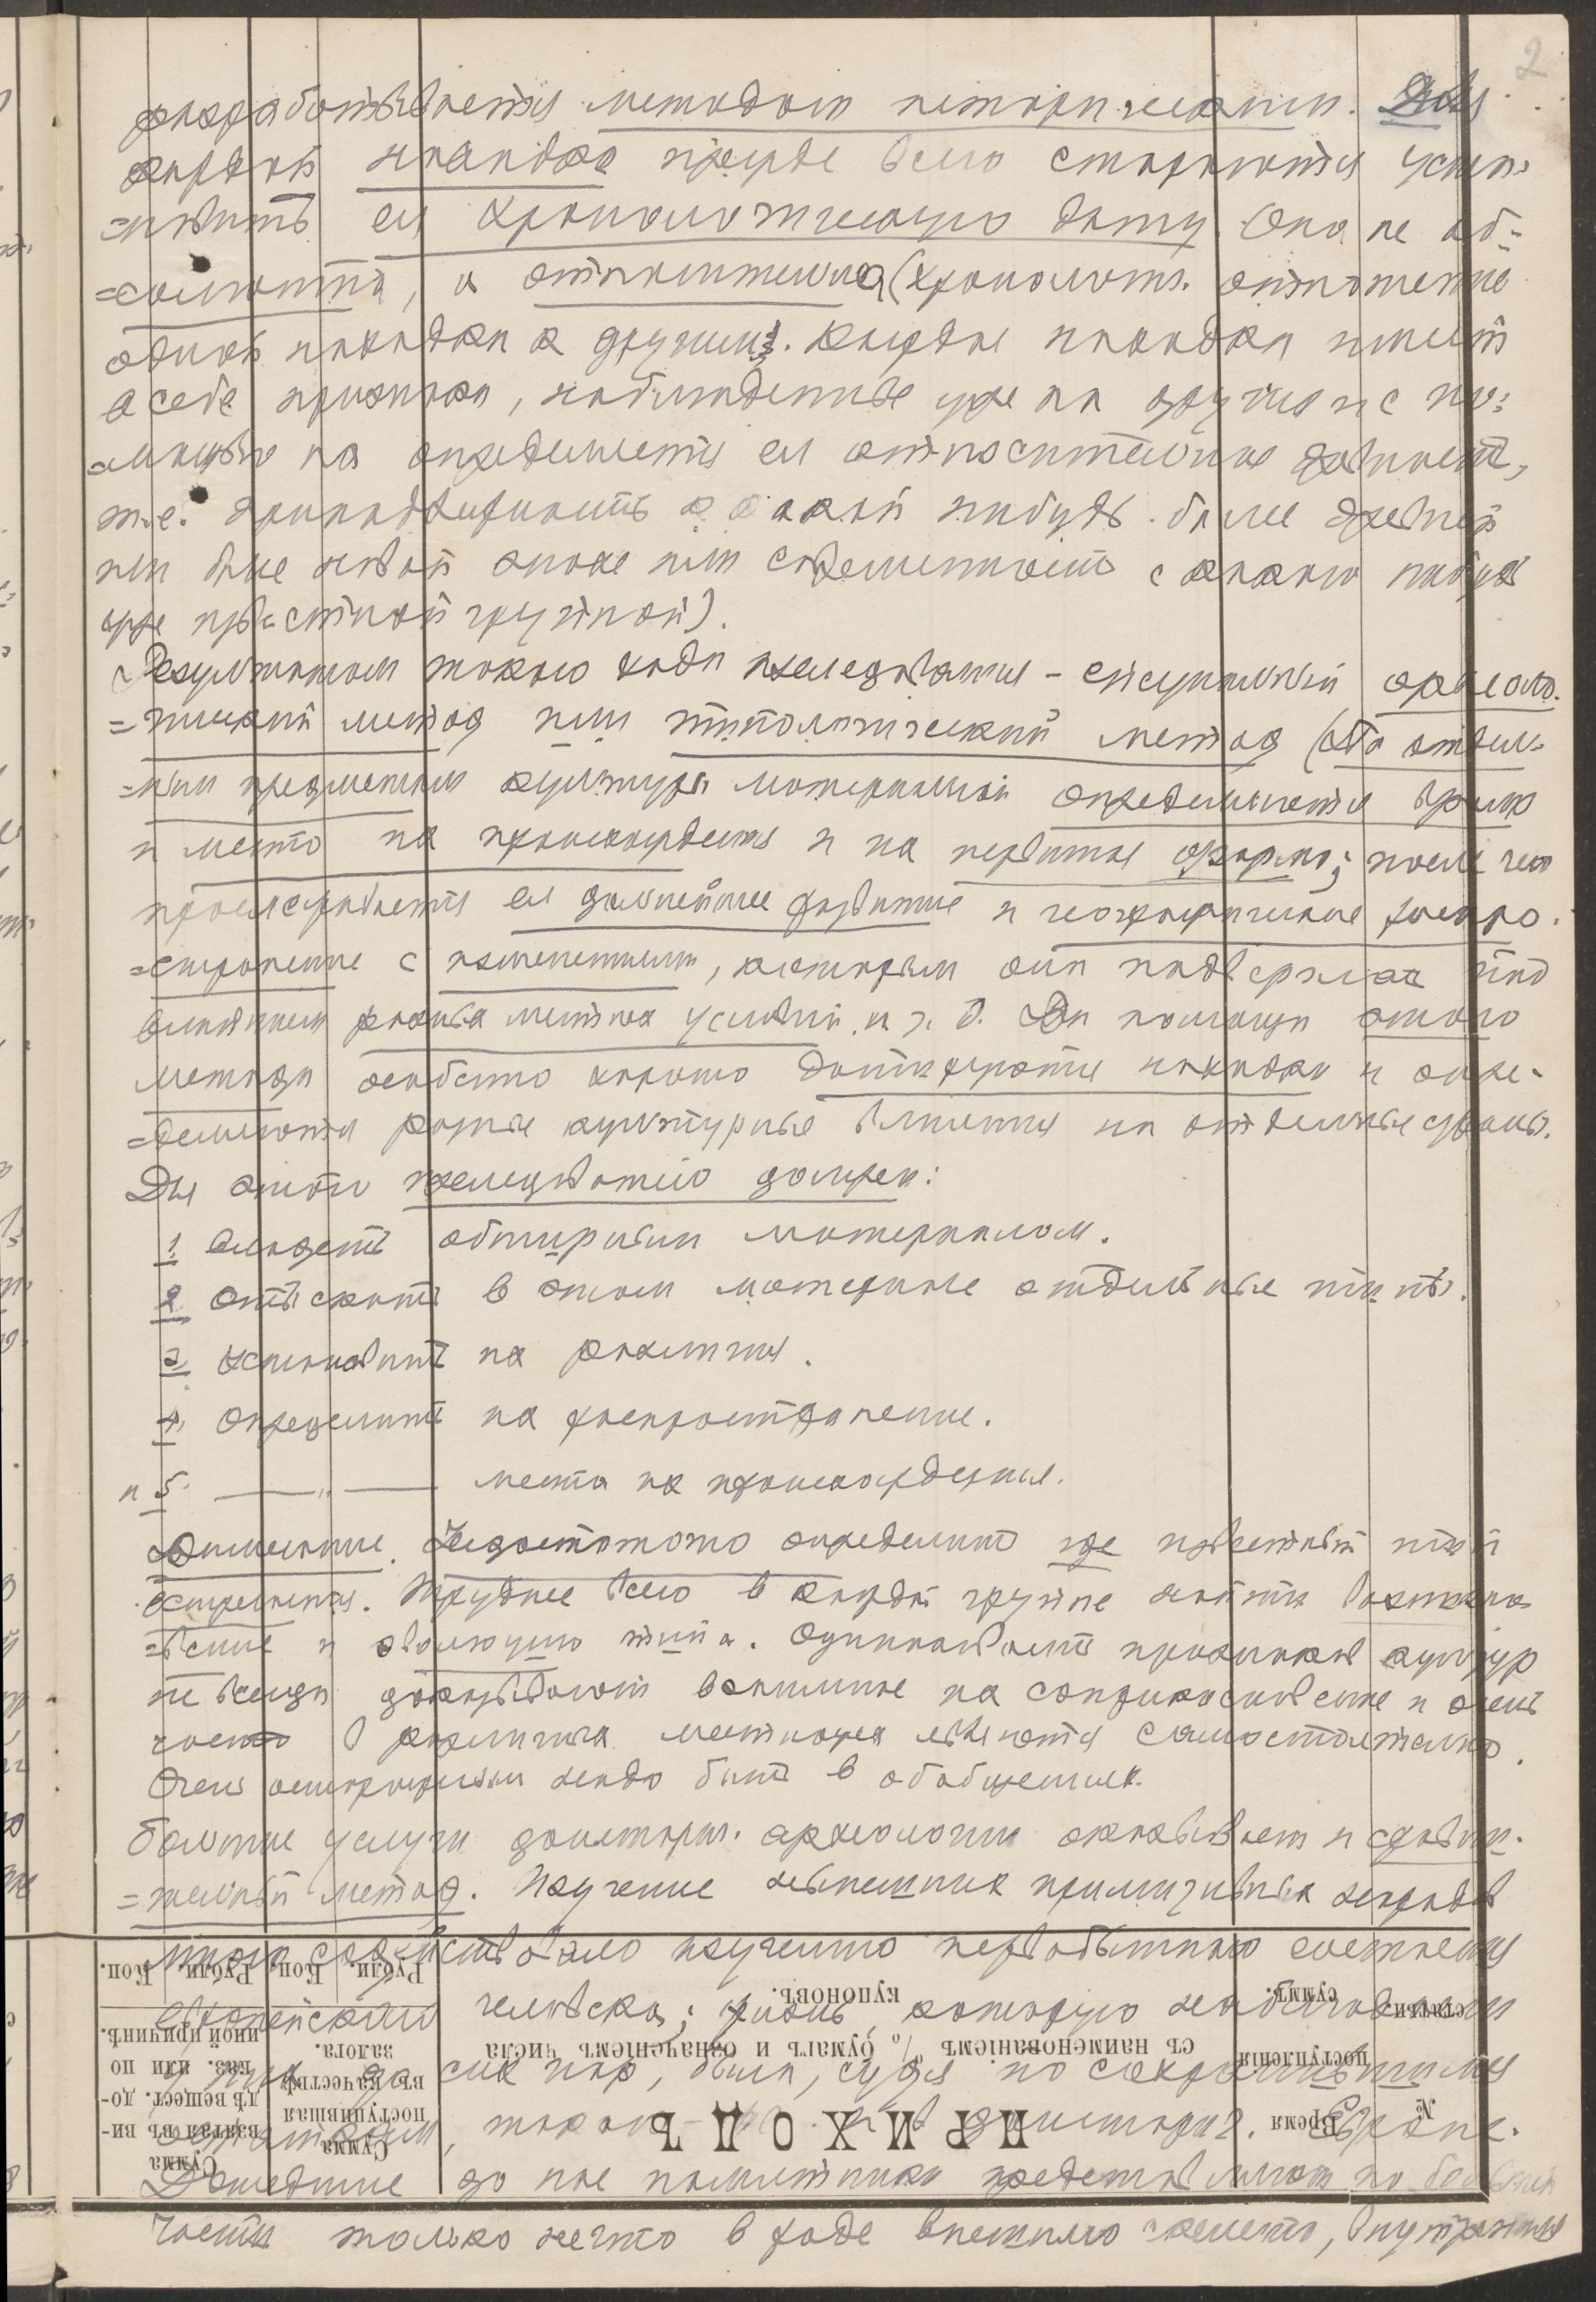 2
разрабатывается методом историческим. Для
каждой находки прежде всего стараются уста-
=новить ея хронологическую дату. Она не аб-
=солютна, а относительна (хронологич. отношение
одной находки к другим). Каждая находка имеет
в себе признаки, наблюденные уже на других и с по-
=мощью их определяется ея относительная древность,
т.е. принадлежность к какой нибудь более древней
или более новой эпохе или современность с какою нибудь
уже известной группой).
Результатом такого хода исследования – специальный архео­ло-
=гический метод или типологический метод (По отдель-
=ным предметам культуры материальной определяется время
и место их происхождения и их первичная форма; после чего
прослеживается ея дальнейшее развитие и географическое распро-
=странение с изменениями, которым они подвергались под
влиянием разных местных условий и т. д. При помощи этого
метода особенно хорошо датируются находки и опре-
=деляются разные культурные влияния на отдельные страны.
Для этого исследователь должен:
1. Владеть обширным материалом.
2. Отыскать в этом материале отдельные типы.
3. Установить их различия.
4. Определить их распространение.
и 5. — „ — места их происхождения.
Описание. Недостаточно определить где известный тип
встречается. Труднее всего в каждой группе найти
и эволюцию типа. Одинаковость признаков культур
не всегда доказывает влияние их соприкосновение и очень
часто в различных местностях является самостоятельно.
Очень осторожным надо быть в обобщениях.
Большие услуги доисторич. археологии оказывает и сравни-
=тельный метод. Изучение нынешних примитивных народов
много содействовало изучению первобытного состояния
европейского человека; жизнь, которую
до сих пор, была, судя по сохранившимся
остаткам, доисторич. Европе.
Дошедшие до нас памятники представляют по большей
части только нечто в роде внешнего скелета, внутренняя
ПРИХОДЪ
№
Время поступления
статьи.
суммъ.
съ наименованіемъ % бумагъ и означеніемъ числа
купоновъ.
Сумма
поступившая
въ качествѣ
залога.
Рубли. Коп.
Сумма
взятая въ ви-
дѣ вещест. до-
каз. или по
иной причинѣ.
Рубли. Коп.